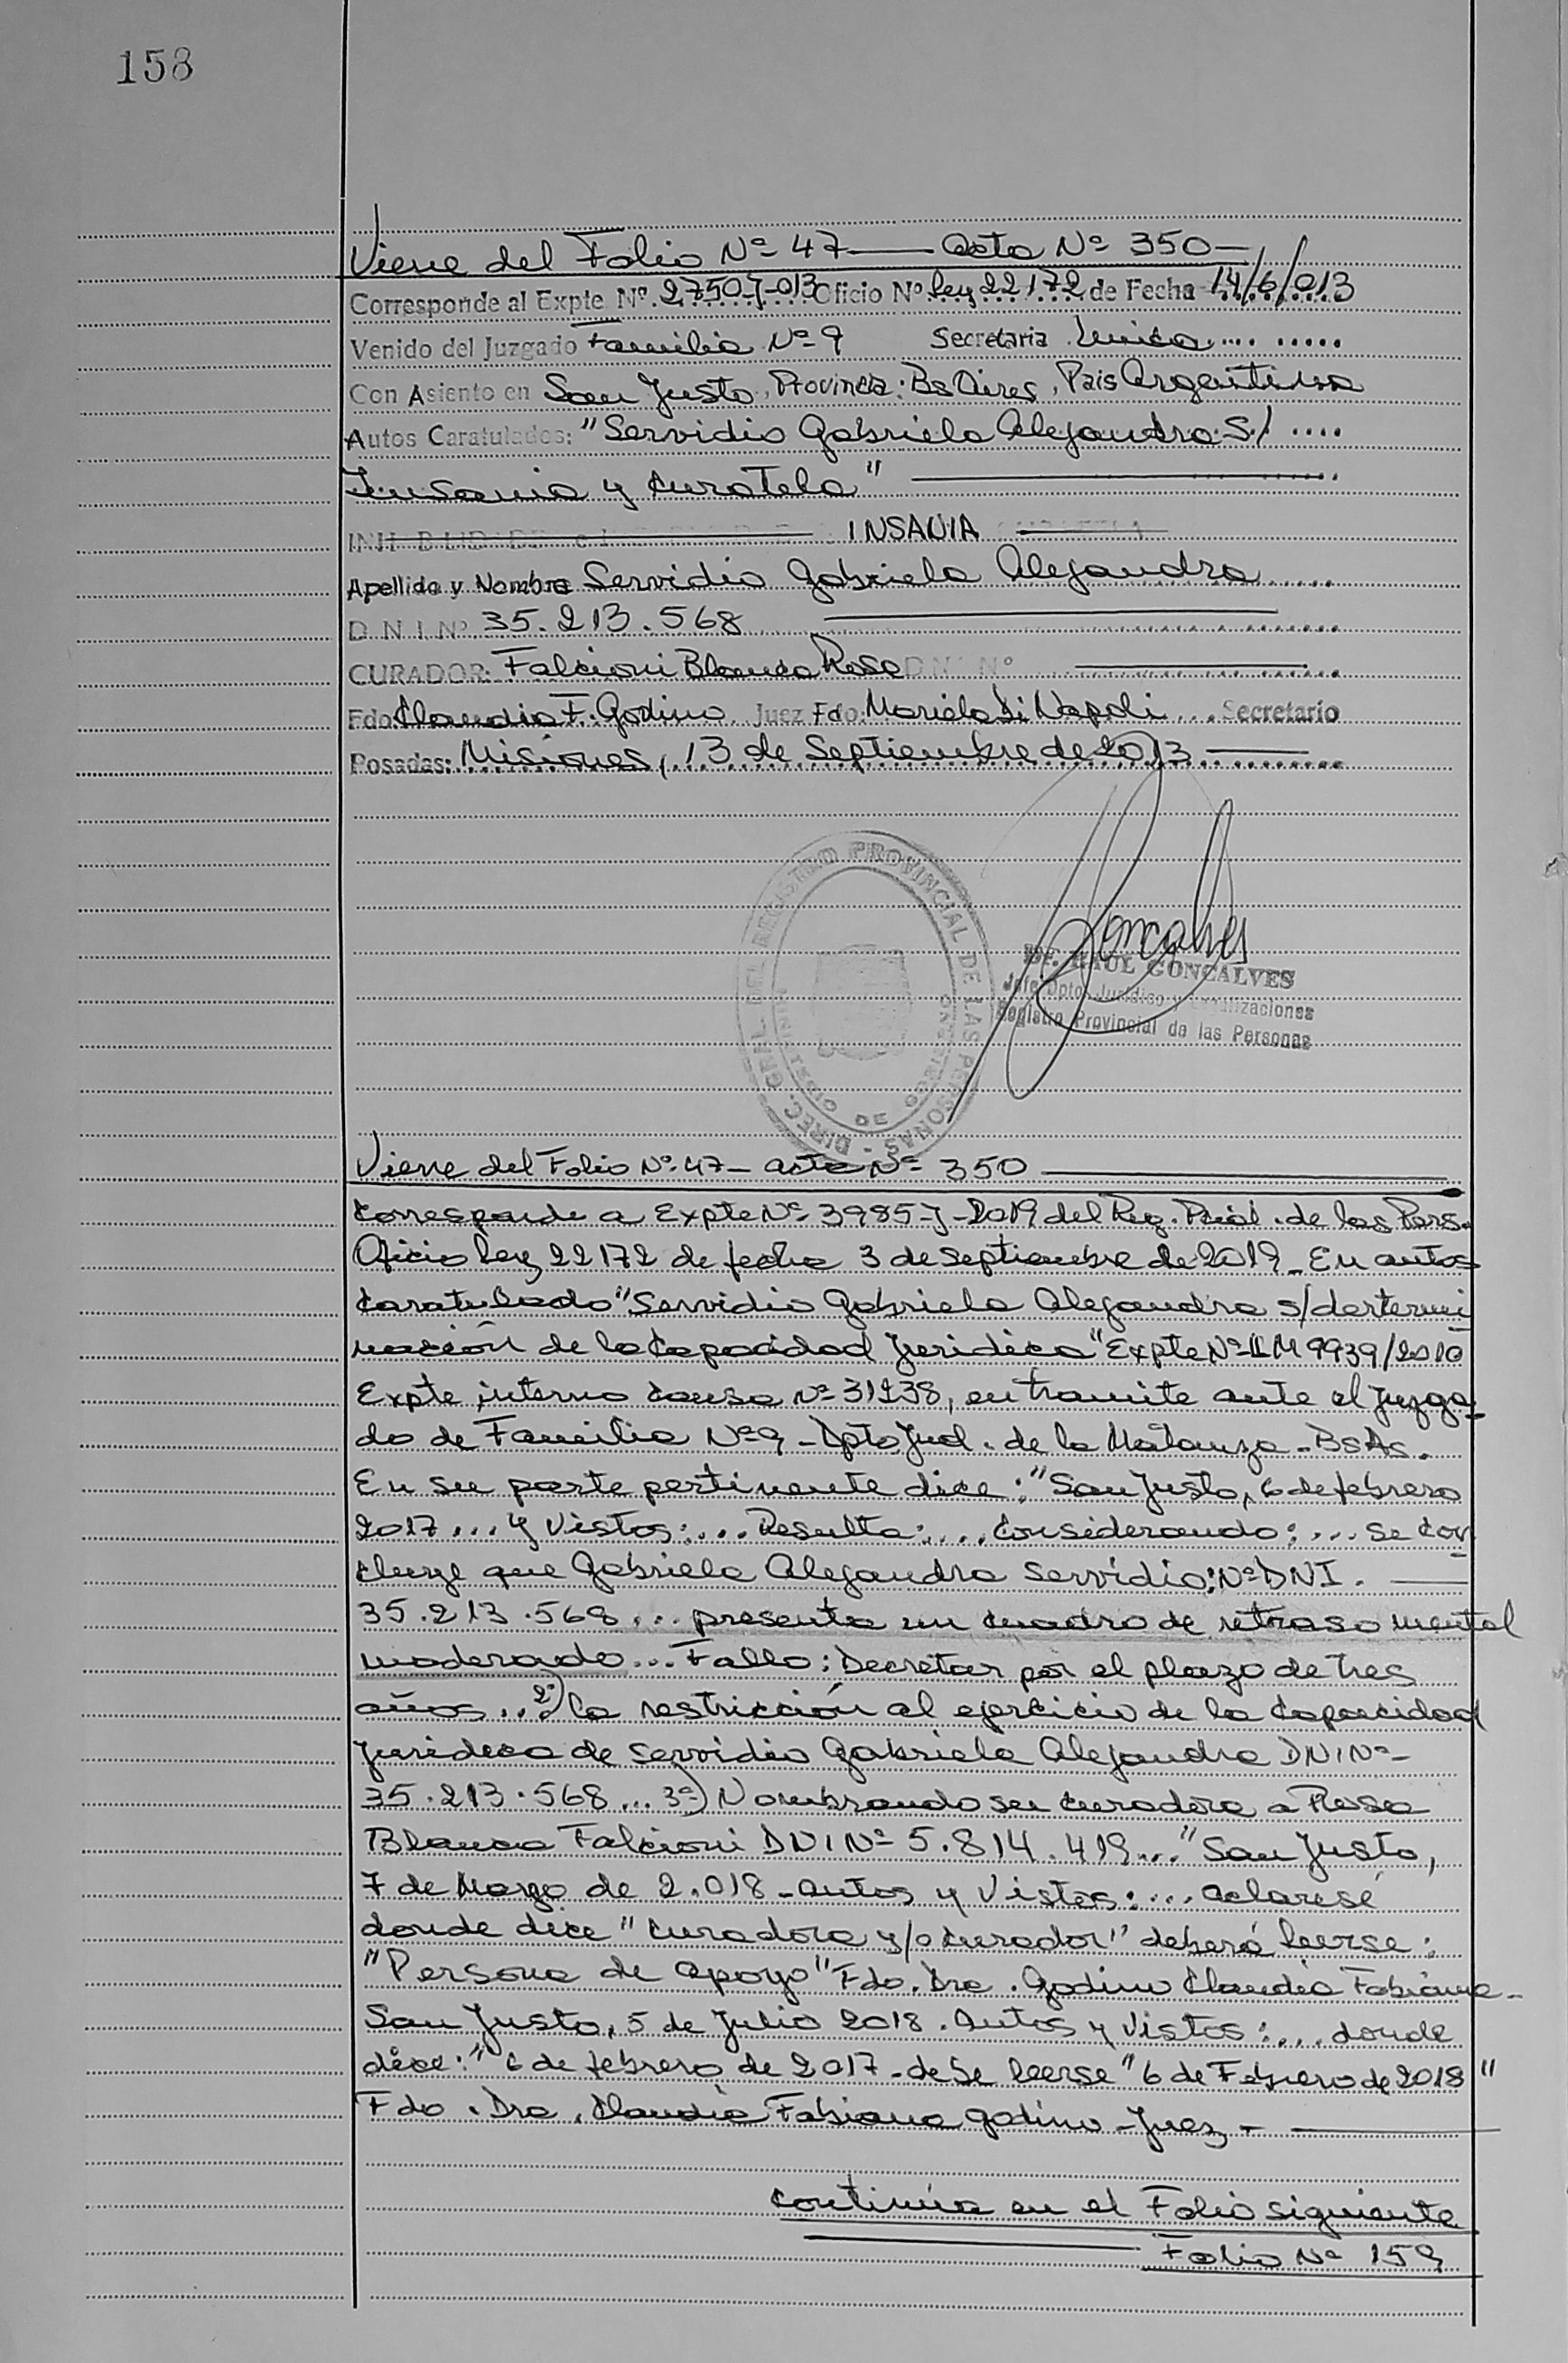 158
Viene del Folio Nº 47 —— acta Nº 350 —
Corresponde al Expte Nº. 2750-J-013 Oficio Nº Ley 22172 de Fecha 14/6/013
Venido del Juzgado Familia Nº 9 Secretaria Unica
Con Asiento en San Justo, Provincia: Bs Aires, Pais Argentina
Autos Caratulados: "Servidio Gabriela Alejandra S/
Insania y Curatela"
INSANIA
Apellido y Nombre Servidio Gabriela Alejandra
D.N.I. Nº 35.213.568
CURADOR: Falcioni Blanca Rosa D N Nº
Fdo. Claudia F. Godino Juez Fdo. Mariela Di Napoli Secretario
Posadas: Misiones, 13 de Septiembre de 2013
DIREC. GRAL. DEL REGISTRO PROVINCIAL DE LAS PERSONAS -
Goncalves
DE. RAUL GONCALVES
Jefe Dpto. Jurídico y Legalizaciones
Registro Provincial de las Personas
Viene del Folio Nº 47 - acta Nº 350
Corresponde a Expte Nº 3985-J-2019 del Reg. Pcial. de las Pers.
Oficio Ley 22172 de fecha 3 de septiembre de 2019 - En autos
Caratulado "Servidio Gabriela Alejandra s/ dertermi
nación de la Capacidad Juridica" Expte Nº LM 9939/2010
Expte interno causa Nº 31238, en tramite ante el Juzga-
do de Familia Nº 9 - Dpto Jud. de la Matanza - BsAs.
En su parte pertinente dice: "San Justo, 6 de febrero
2017 ... y Vistos: ... Resulta: ... Considerando: ... se con
cluye que Gabriela Alejandra Servidio; Nº DNI. —
35.213.568 ... presenta un cuadro de retraso mental
moderado ... Fallo: Decretar por el plazo de tres
años ... 2º) la restricción al ejercicio de la Capacidad
Juridica de Servidio Gabriela Alejandra DNI Nº -
35.213.568 ... 3º) Nombrando su curadora a Rosa
Blanca Falcioni DNI Nº 5.814.419 ... "San Justo,
7 de Marzo de 2.018 - autos y Vistos: ... aclarese
donde dice "curadora y/o curador" deberá leerse:
"Persona de apoyo" Fdo. Dra. Godino Claudia Fabiana -
San Justo, 5 de Julio 2018. Autos y Vistos: ... donde
dice: "6 de febrero de 2017 - debe leerse "6 de Febrero de 2018"
Fdo. Dra. Claudia Fabiana Godino - Juez -
continúa en el Folio siguiente
Folio Nº 159